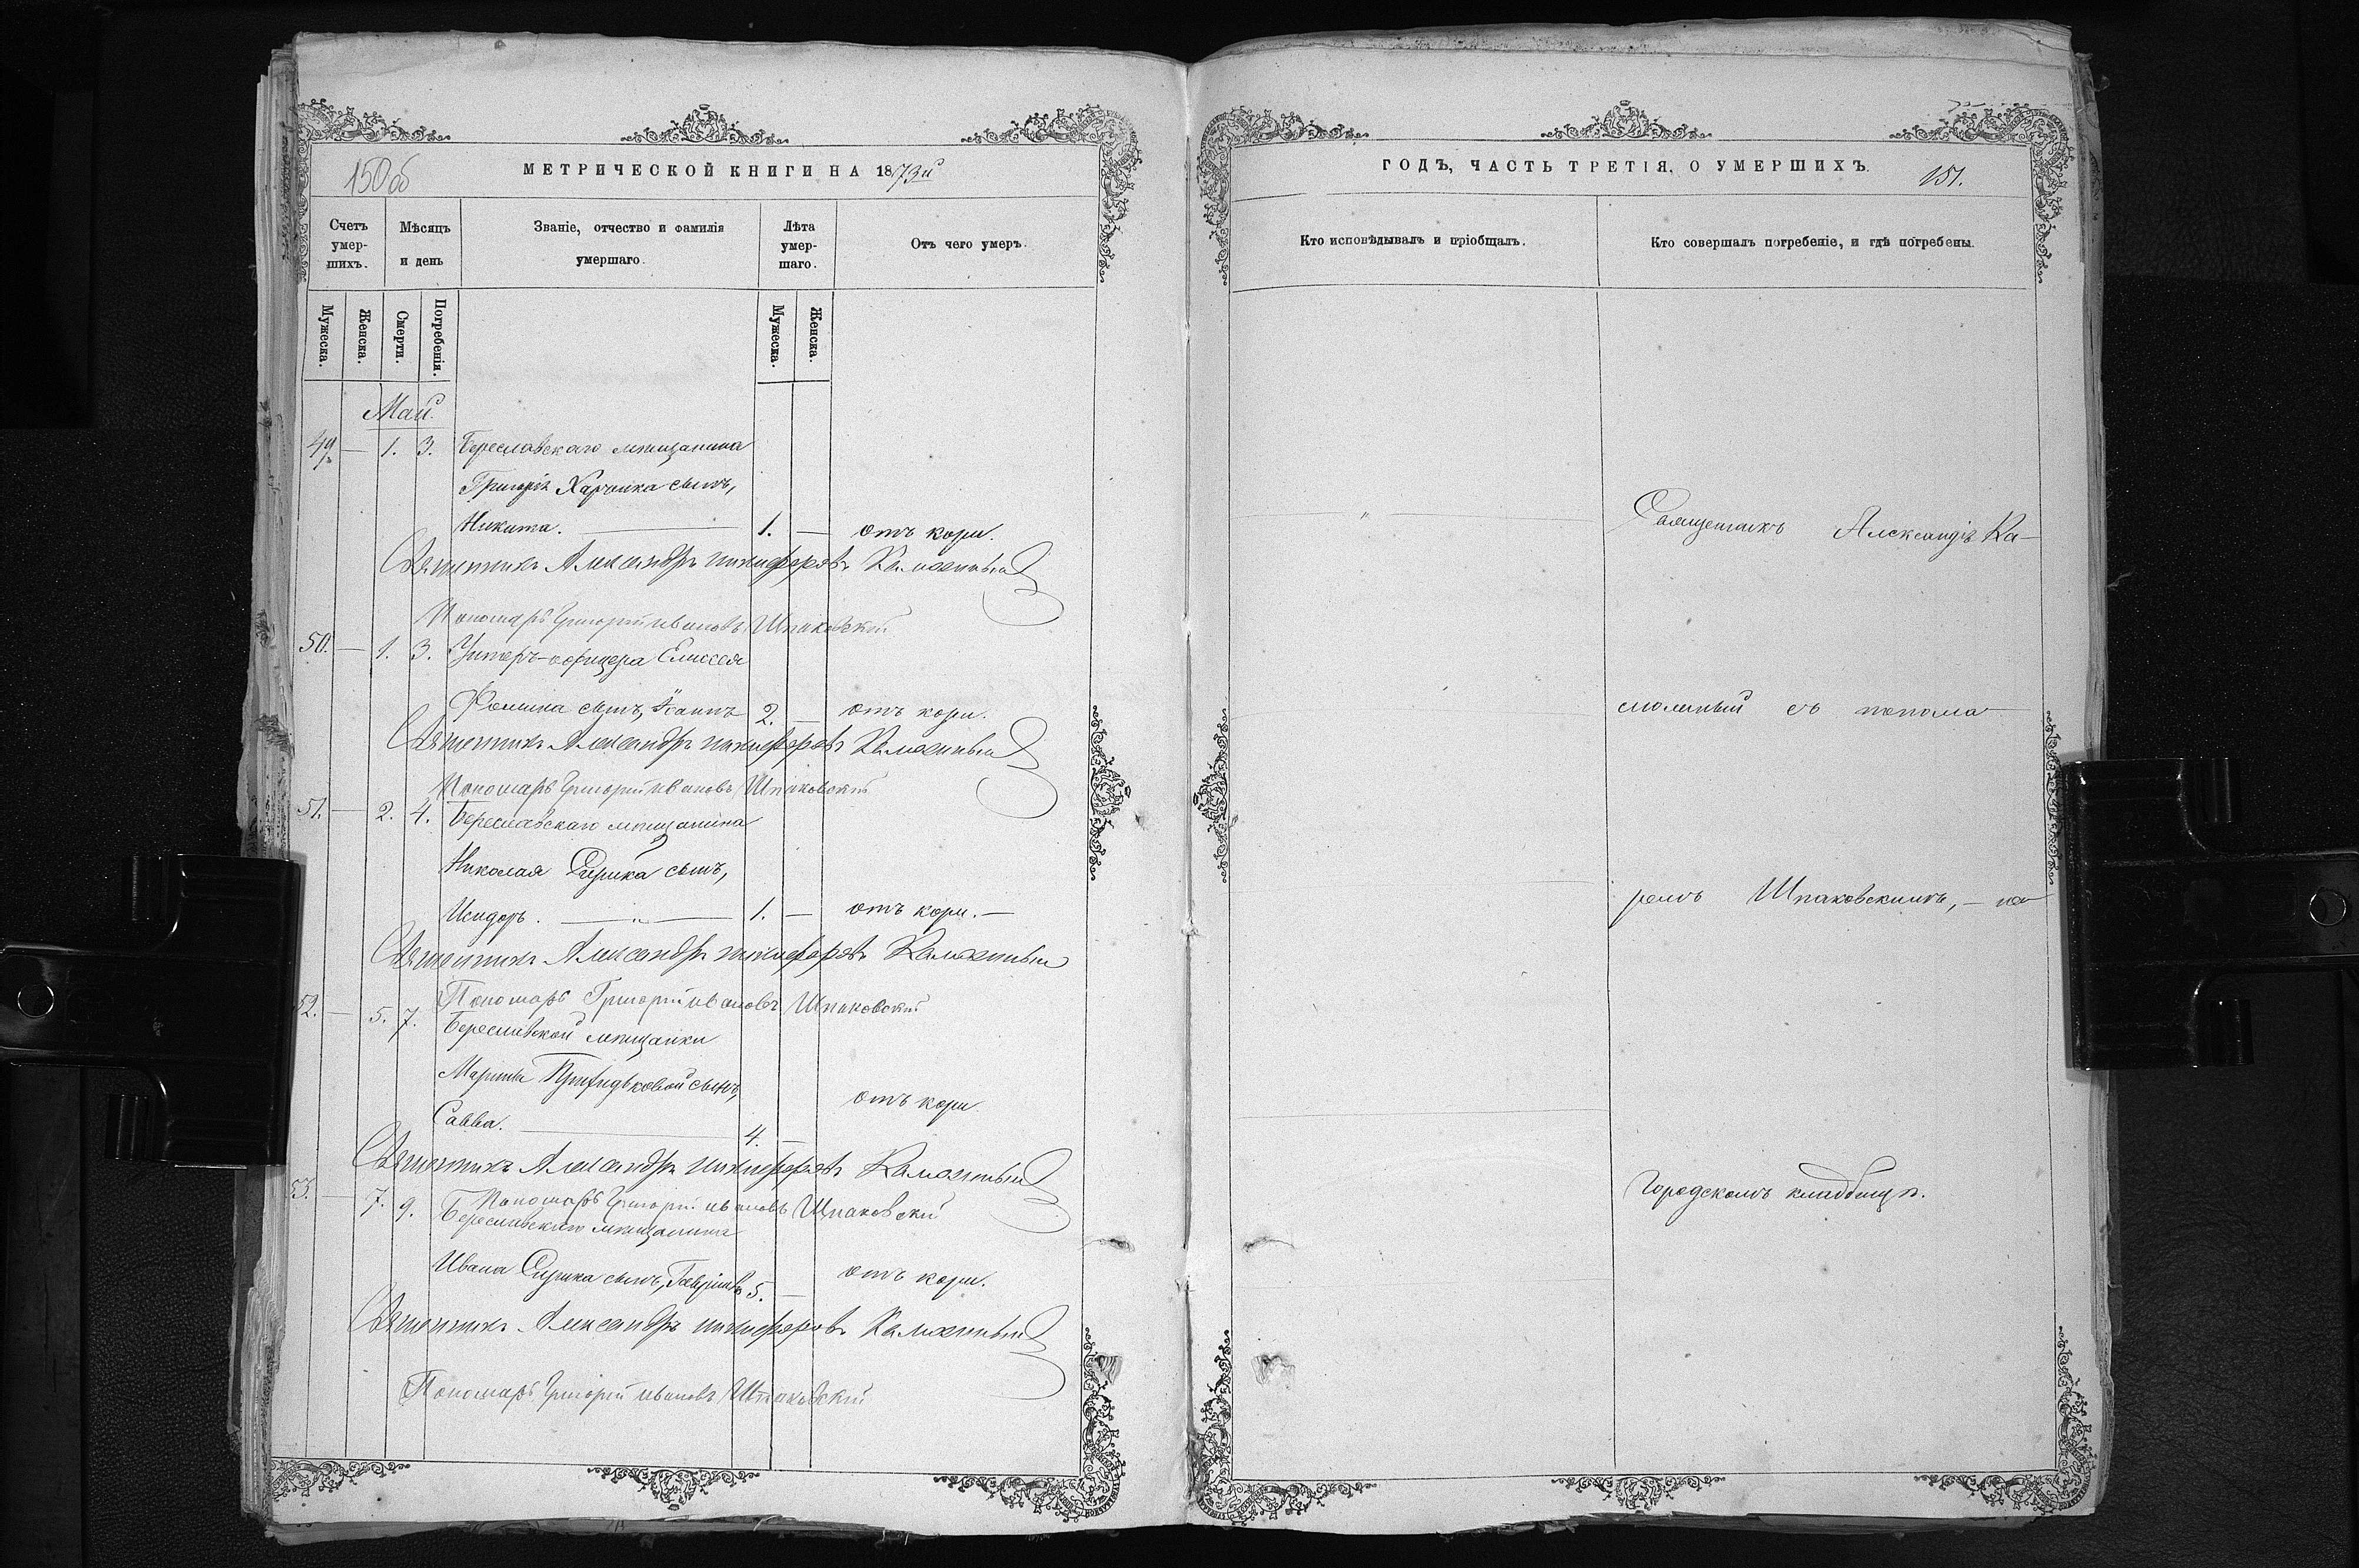 150 об
МЕТРИЧЕСКОЙ КНИГИ НА 1873й
Счетъ умер-шихъ.
Мѣсяцъ и день
Званіе, отчество и фамилія умершаго.
Лѣта умер-шаго.
Отъ чего умеръ.
Мужеска.
Женска.
Смерти.
Погребенія.
Мужеска.
Женска.
Май
49. — 1. 3. Береславскаго мѣщанина
Григорія сынъ,
Никита. — 1. — отъ кори.
Священникъ Александръ Никифоровъ
Пономарь Григорій Ивановъ Шпаковскій
50. — 1. 3. Унтеръ-офицера Елисея
Фомина сынъ, Іоаннъ 2. — отъ кори.
Священникъ Александръ Никифоровъ
Пономарь Григорій Ивановъ Шпаковскій
51. — 2. 4. Береславскаго мѣщанина
Николая Сирика сынъ,
Исидоръ. — 1. — отъ кори. —
Священникъ Александръ Никифоровъ
Пономарь Григорій Ивановъ Шпаковскій
52. — 5. 7. Береславской мѣщанки
Марины сынъ,
Савва. — 4. — отъ кори
Священникъ Александръ Никифоровъ
Пономарь Григорій Ивановъ Шпаковскій
53. — 7. 9. Береславскаго мѣщанина
Ивана Сирика сынъ, Гавріилъ 5. — отъ кори.
Священникъ Александръ Никифоровъ
Пономарь Григорій Ивановъ Шпаковскій
ГОДЪ, ЧАСТЬ ТРЕТІЯ, О УМЕРШИХЪ.
151.
Кто исповѣдывалъ и пріобщалъ.
Кто совершалъ погребеніе, и гдѣ погребены.
Священникъ Александръ Ка-
съ понома-
ремъ Шпаковскимъ, — на
Городскомъ кладбищѣ.